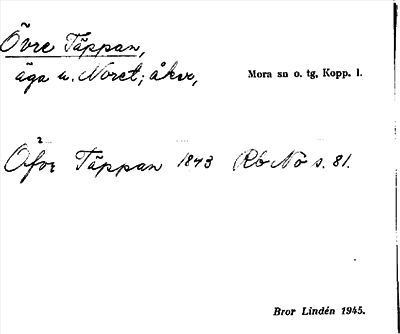 Övre Täppan,
äga u. Noret; åker,
Mora sn o. tg, Kopp. l.
Öfvr Täppan 1843 Rö Nö s. 81.
Bror Lindén 1945.